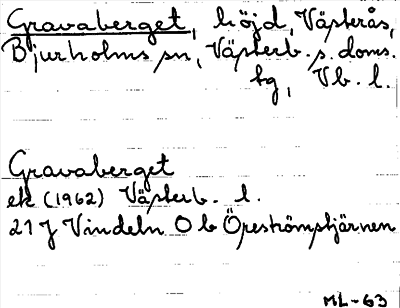 Gravaberget, höjd, Västerås,
Bjurholms sn, Västerb. s. doms.
hg, Vb. l.
Gravaberget
ek (1962) Västerb. l.
21 J Vindeln 0 b Öreströmstjärnen
ML-63